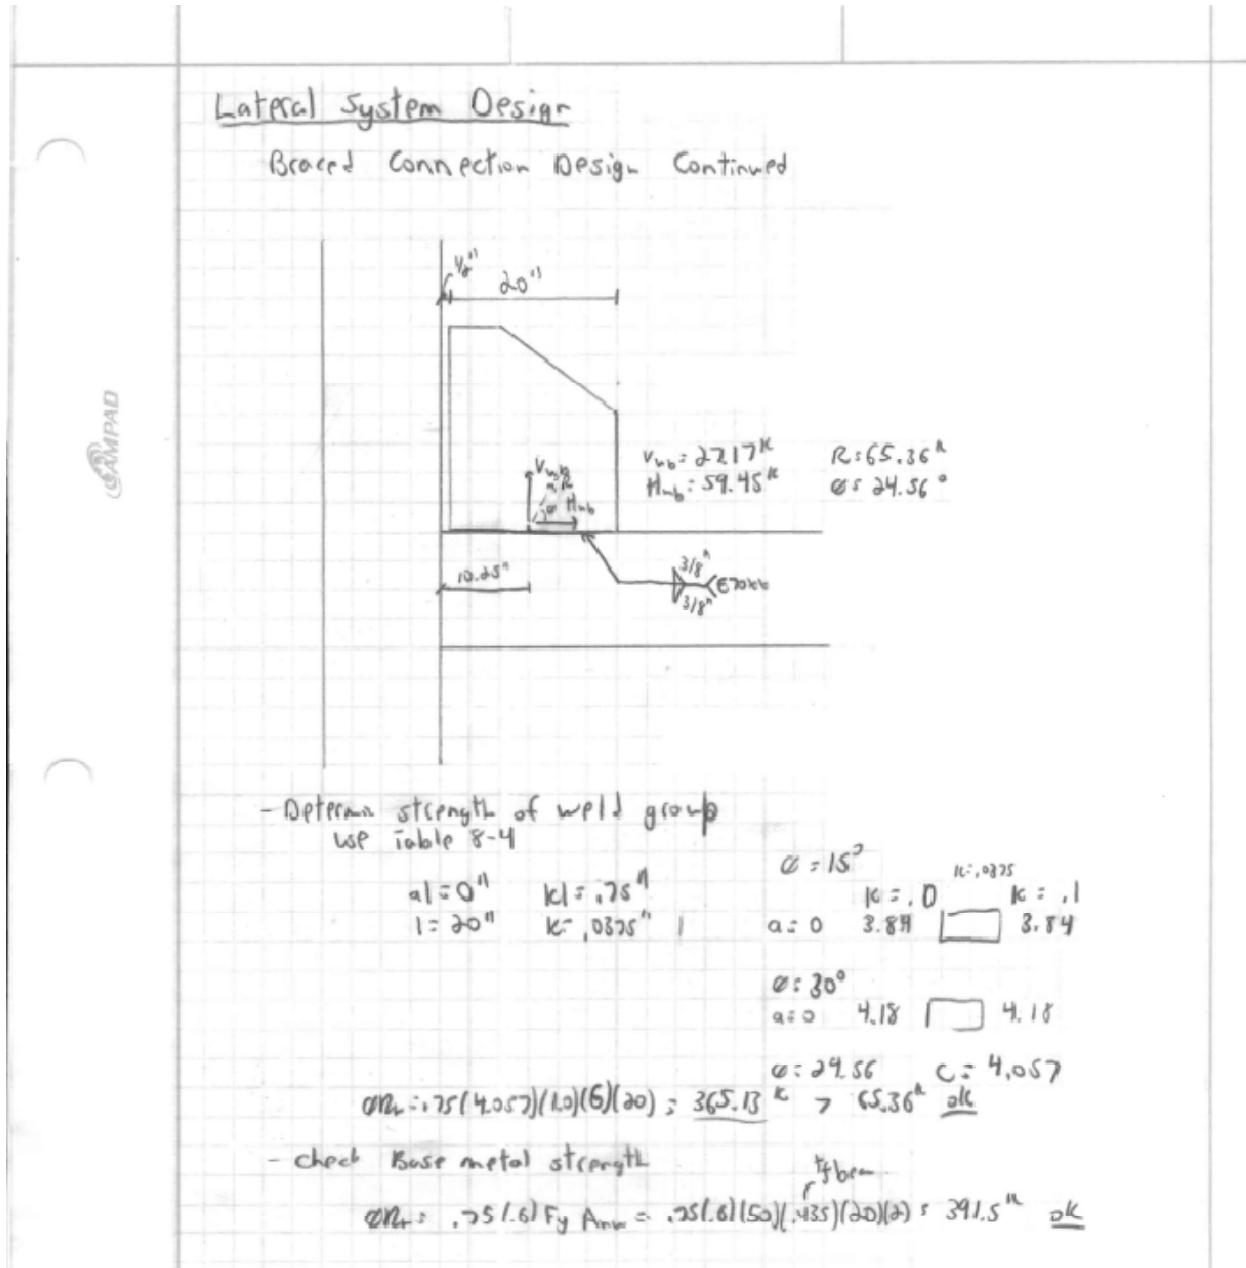 Lateral System Design
Braced Connection Design Continued
CAMPAD
1/2"
20"
Vub = 27.17k R = 65.36k
Hub = 59.45k Ø = 24.56°
Vub
R
Ø Hub
10.25"
3/8"
3/8" E70xx
- Determin strength of weld group
use Table 8-4
al = 0" kl = .75"
l = 20" k = .0375"
Ø = 15°
k = .0375
k = .0 k = .1
a = 0 3.84 3.84
Ø = 30°
a = 0 4.18 4.18
Ø = 24.56 C = 4.057
ØRn = .75(4.057)(1.0)(6)(20) = 365.13k > 65.36k ok
- check Base metal strength
tf beam
ØRn = .75(.6) Fy Anw = .75(.6)(50)(.435)(20)(2) = 391.5k ok